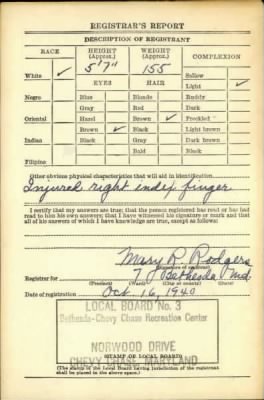 REGISTRAR'S REPORT
DESCRIPTION OF REGISTRANT
RACE HEIGHT (Approx.) WEIGHT (Approx.) COMPLEXION
5'7" 155
White ✓ EYES HAIR Sallow
Light ✓
Negro Blue Blonde Ruddy
Gray Red Dark
Oriental Hazel Brown ✓ Freckled
Brown ✓ Black Light brown
Indian Black Gray Dark brown
Bald Black
Filipino
Other obvious physical characteristics that will aid in identification
Injured right index finger
I certify that my answers are true; that the person registered has read or has
had read to him his own answers; that I have witnessed his signature or mark and that
all of his answers of which I have knowledge are true, except as follows:
Mary R. Rodgers
(Signature of registrar)
Registrar for 7 Bethesda Md.
(Precinct) (Ward) (City or county) (State)
Date of registration Oct. 16, 1940
LOCAL BOARD No. 3
Bethesda-Chevy Chase Recreation Center
NORWOOD DRIVE
CHEVY CHASE, MARYLAND
STAMP OF LOCAL BOARD
(The stamp of the Local Board having jurisdiction of the registrant
shall be placed in the above space.)